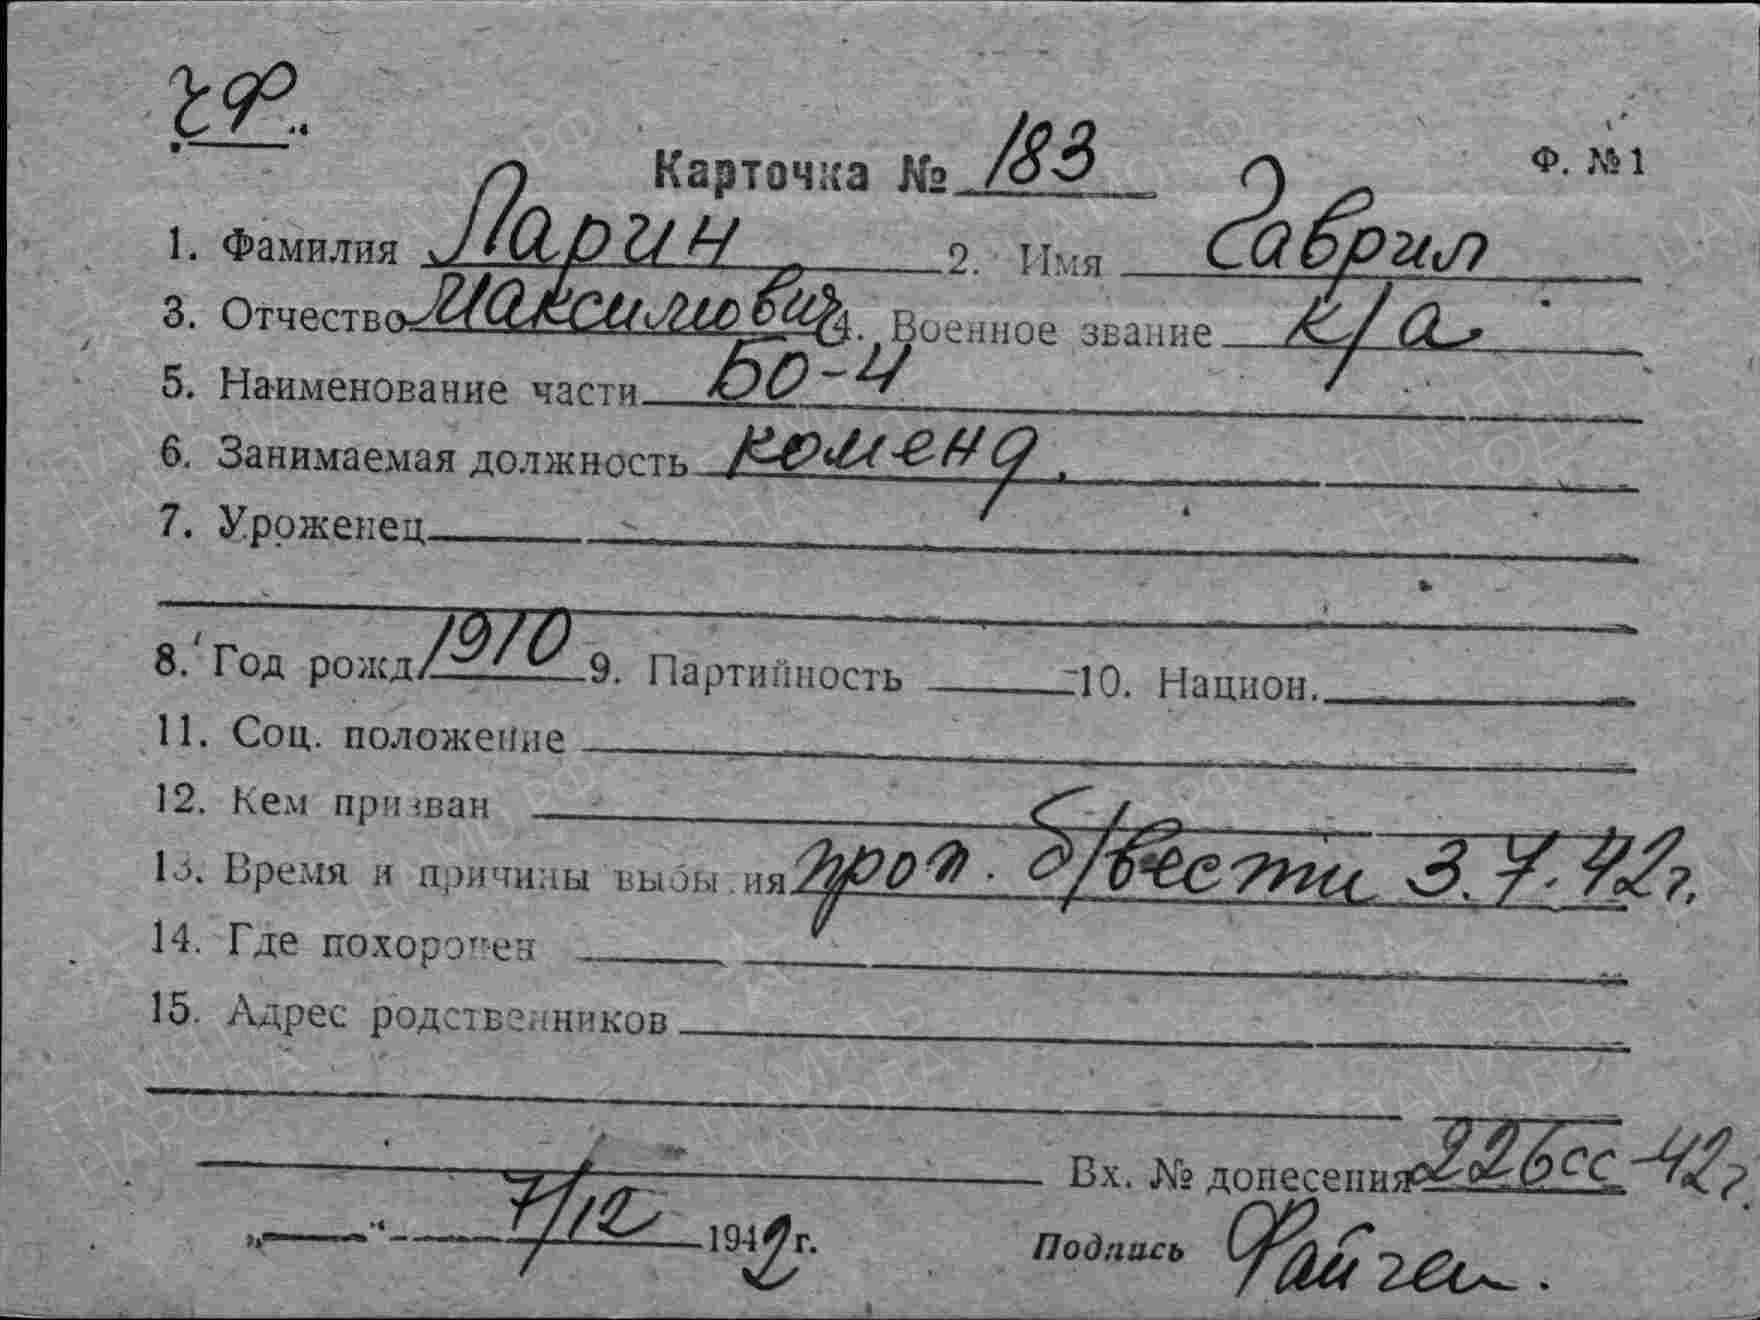 ЧФ.
Карточка № 183
Ф. № 1
1. Фамилия Ларин 2. Имя Гаврил
3. Отчество Максимович 4. Военное звание к/а
5. Наименование части БО-4
6. Занимаемая должность коменд.
7. Уроженец
8. Год рожд. 1910 9. Партийность 10. Национ.
11. Соц. положение
12. Кем призван
13. Время и причины выбытия проп. б/вести 3.7.42г.
14. Где похоронен
15. Адрес родственников
Вх. № донесения 226сс-42г.
„ “ 7/12 1942 г. Подпись